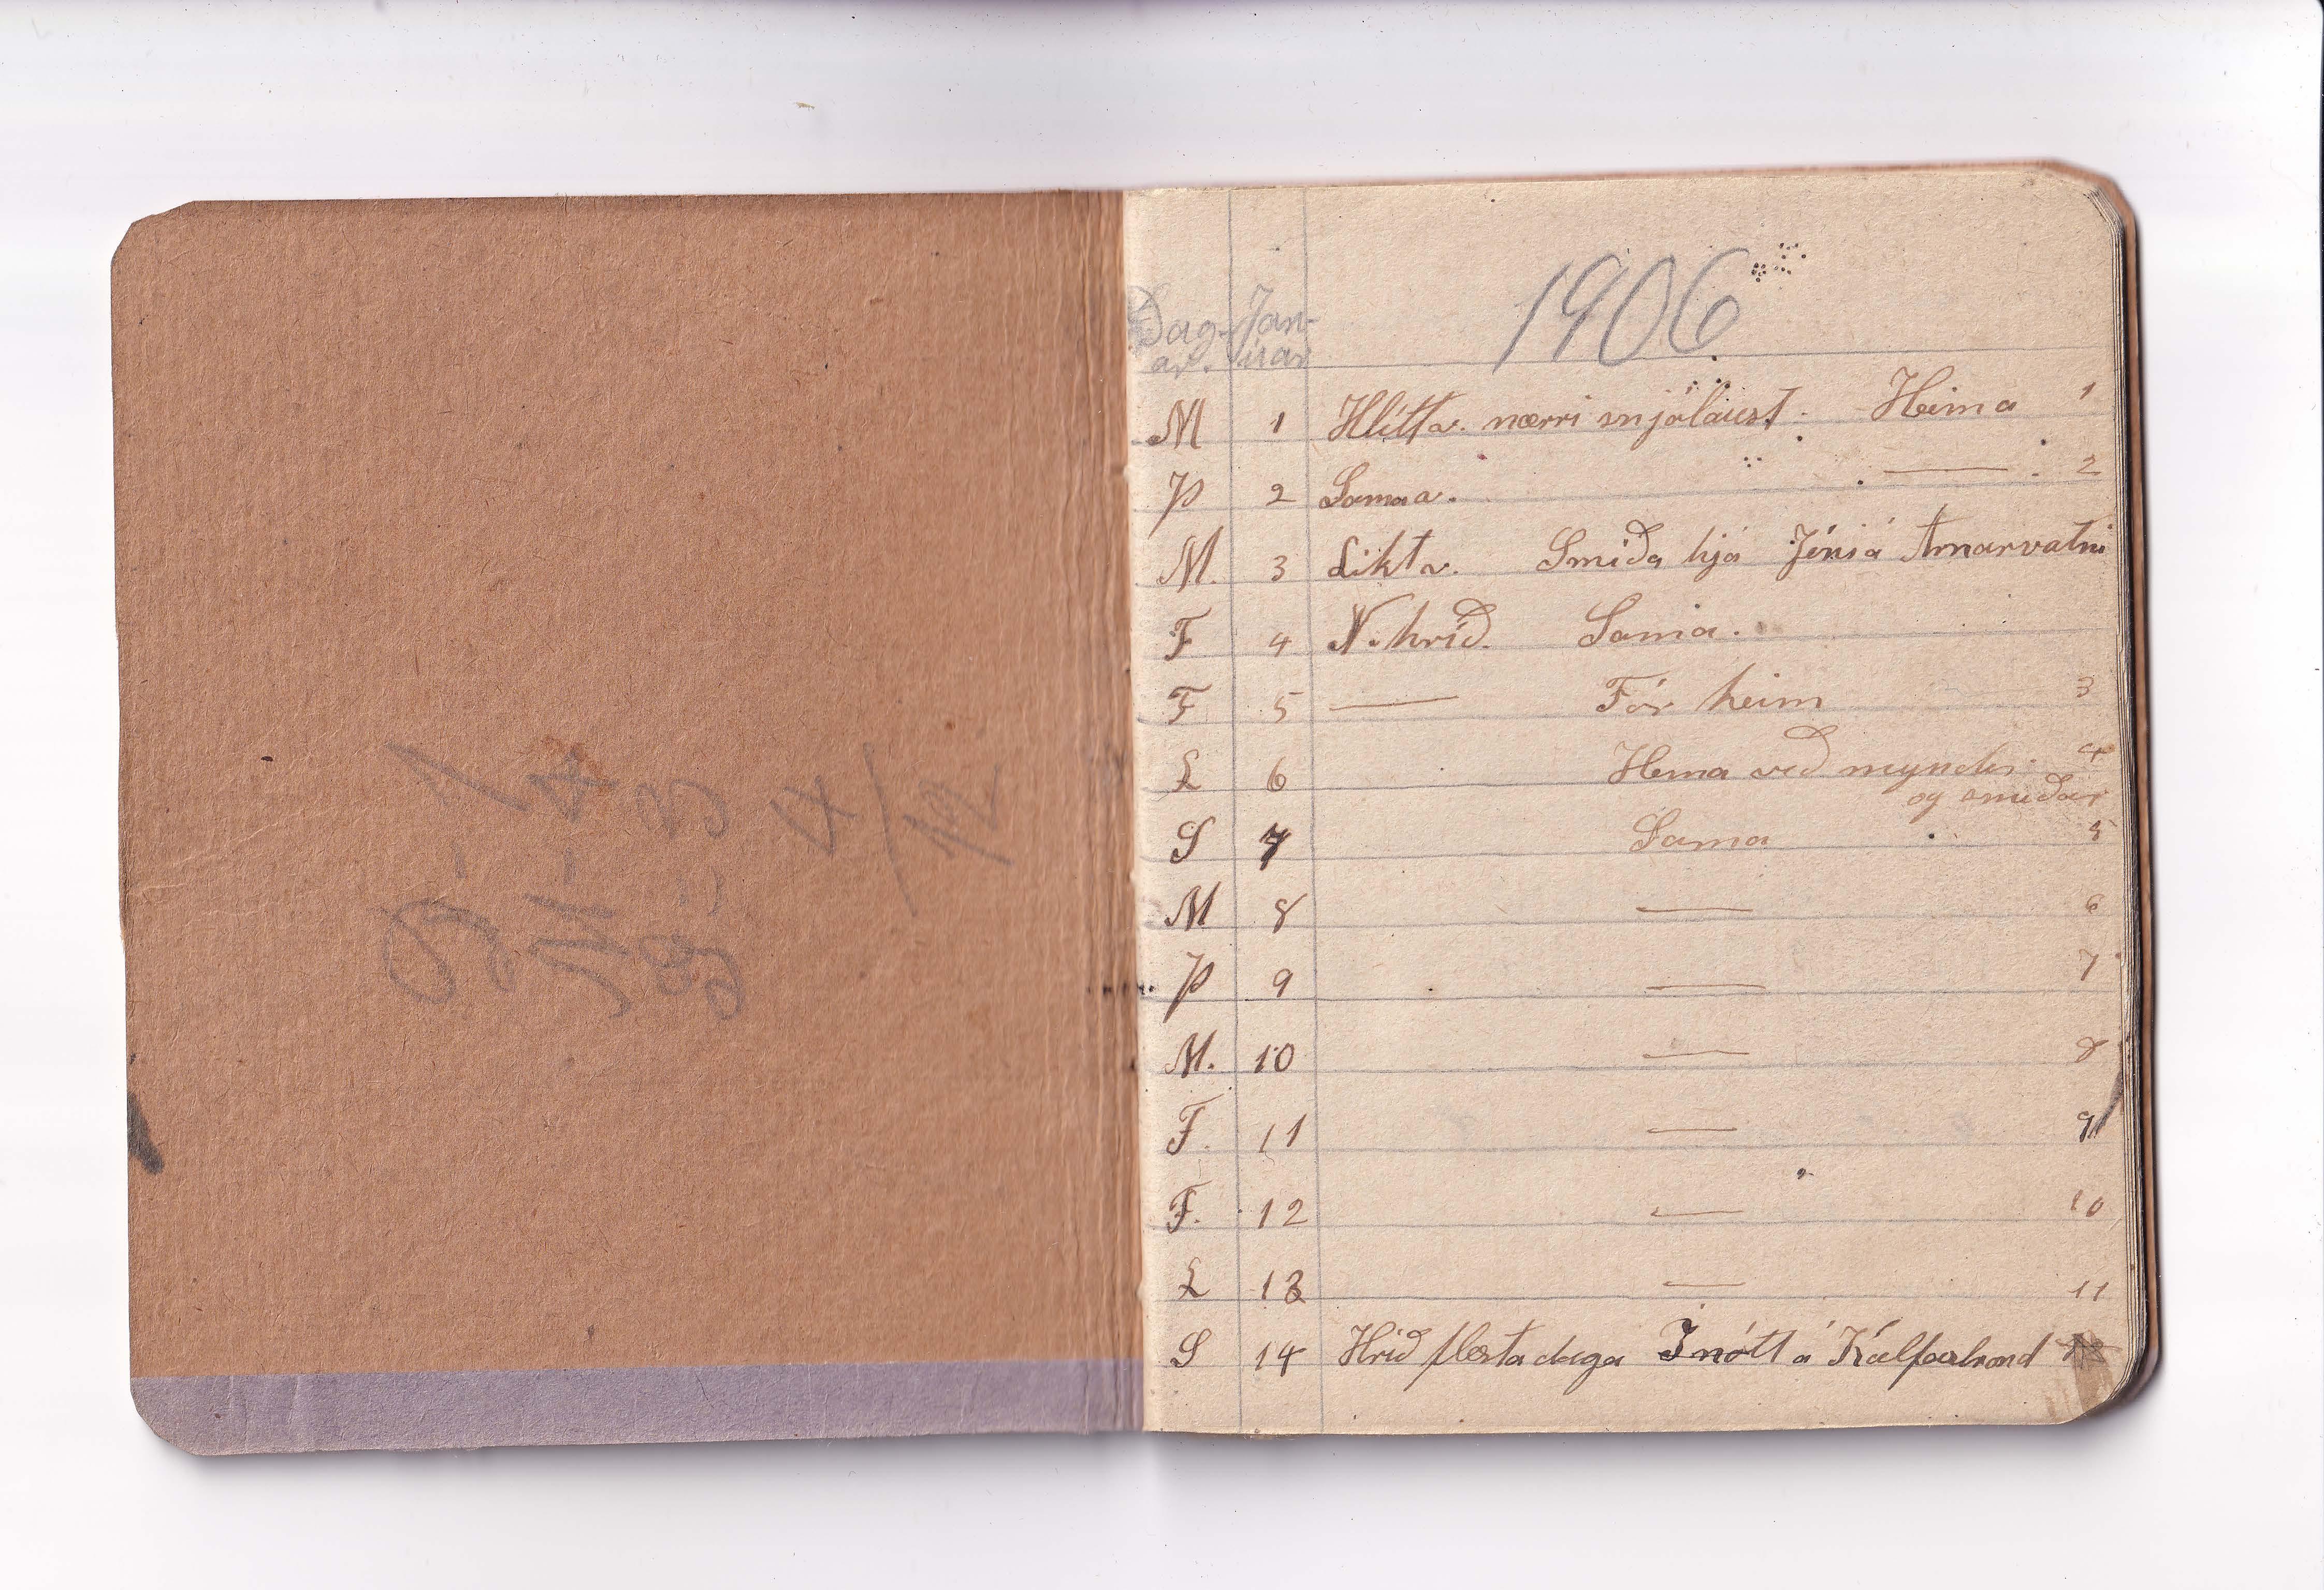 1906
Dag- Jan-
ar. úar
M 1 Hlítt v. nærri snjólaust. Heima 1
Þ 2 Sama v. — . 2
M. 3 Líkt v. Smíða hjá Jóni á Arnarvatni
F 4 N. hríð. Sama.
F 5 — Fór heim 3
L 6 Heima við myndir 4
og smíðar
S 7 Sama 5
M 8 — 6
Þ 9 — 7
M. 10 — 8
F. 11 — 9
F. 12 — 10
L 13 — 11
S 14 Hríð flesta daga Í nótt á Kálfaströnd